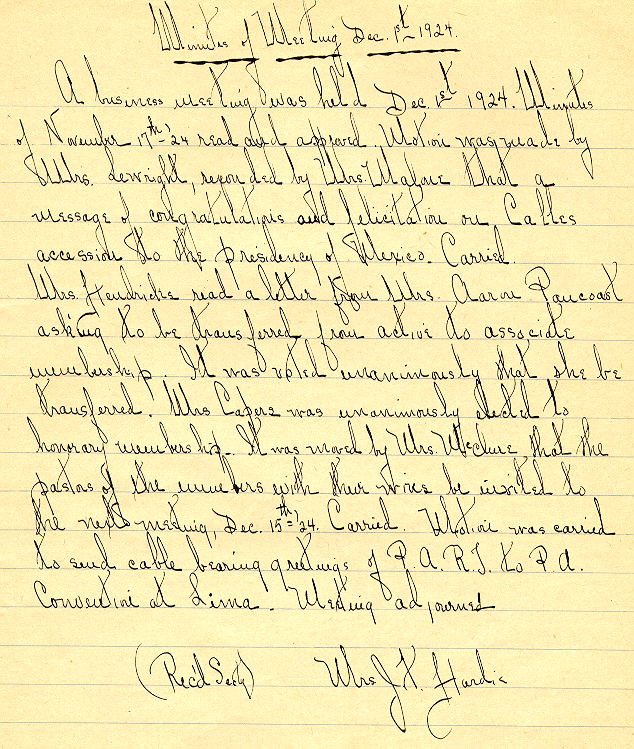 Minutes of Meeting Dec. 1st 1924.
A business meeting was held Dec 1st 1924. Minutes
of November 17th '24 read and approved. Motion was made by
Mrs. Lewright, seconded by Mrs. Malone that a
message of congratulations and felicitation on Calles
accession to the presidency of Mexico. Carried.
Mrs. Hendricks read a letter from Mrs. Aaron Pancoast
asking to be transferred from active to associate
membership. It was voted unanimously that she be
transferred. Mrs Capers was unanimously elected to
honorary membership. It was moved by Mrs. McClure that the
pastors of the members with their wives be invited to
the next meeting, Dec. 15th '24. Carried. Motion was carried
to send cable bearing greetings of P. A. R. T. to P. A.
Convention at Lima. Meeting adjourned
(Rec'd Secty) Mrs J. K. Hardie